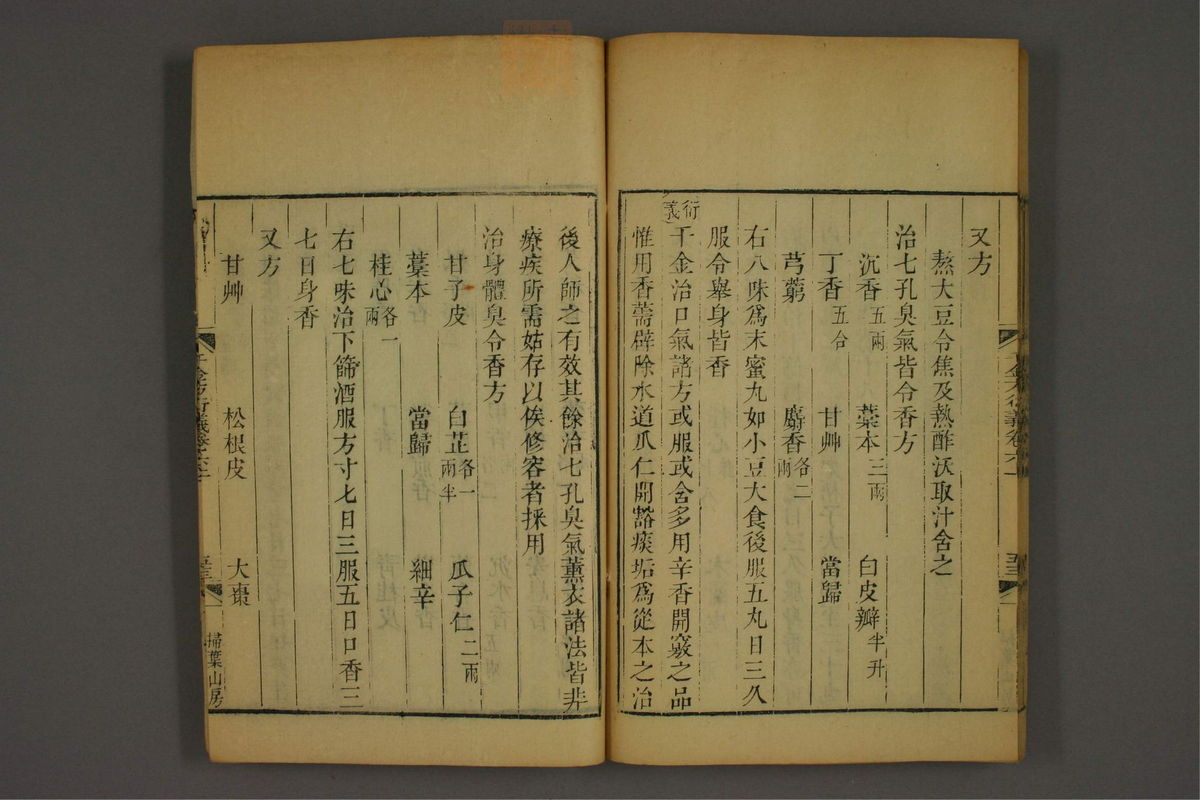 又方
熬大豆令焦及熱酢沃取汁含之
治七孔臭氣皆令香方
沉香五兩 藁本三兩 白皮瓣半升
丁香五合 甘艸 當歸
芎藭 麝香各二兩
右八味爲末蜜丸如小豆大食後服五丸日三久
服令舉身皆香
衍義
千金治口氣諸方或服或含多用辛香開竅之品
惟用香薷辟除水道瓜仁開豁痰垢爲從本之治
後人師之有效其餘治七孔臭氣薰衣諸法皆非
療疾所需姑存以俟修容者採用
治身體臭令香方
甘子皮 白芷各一兩半 瓜子仁二兩
藁本 當歸 細辛
桂心各一兩
右七味治下篩酒服方寸七日三服五日口香三
七日身香
又方
甘艸 松根皮 大棗
千金方衍義卷六上
掃葉山房